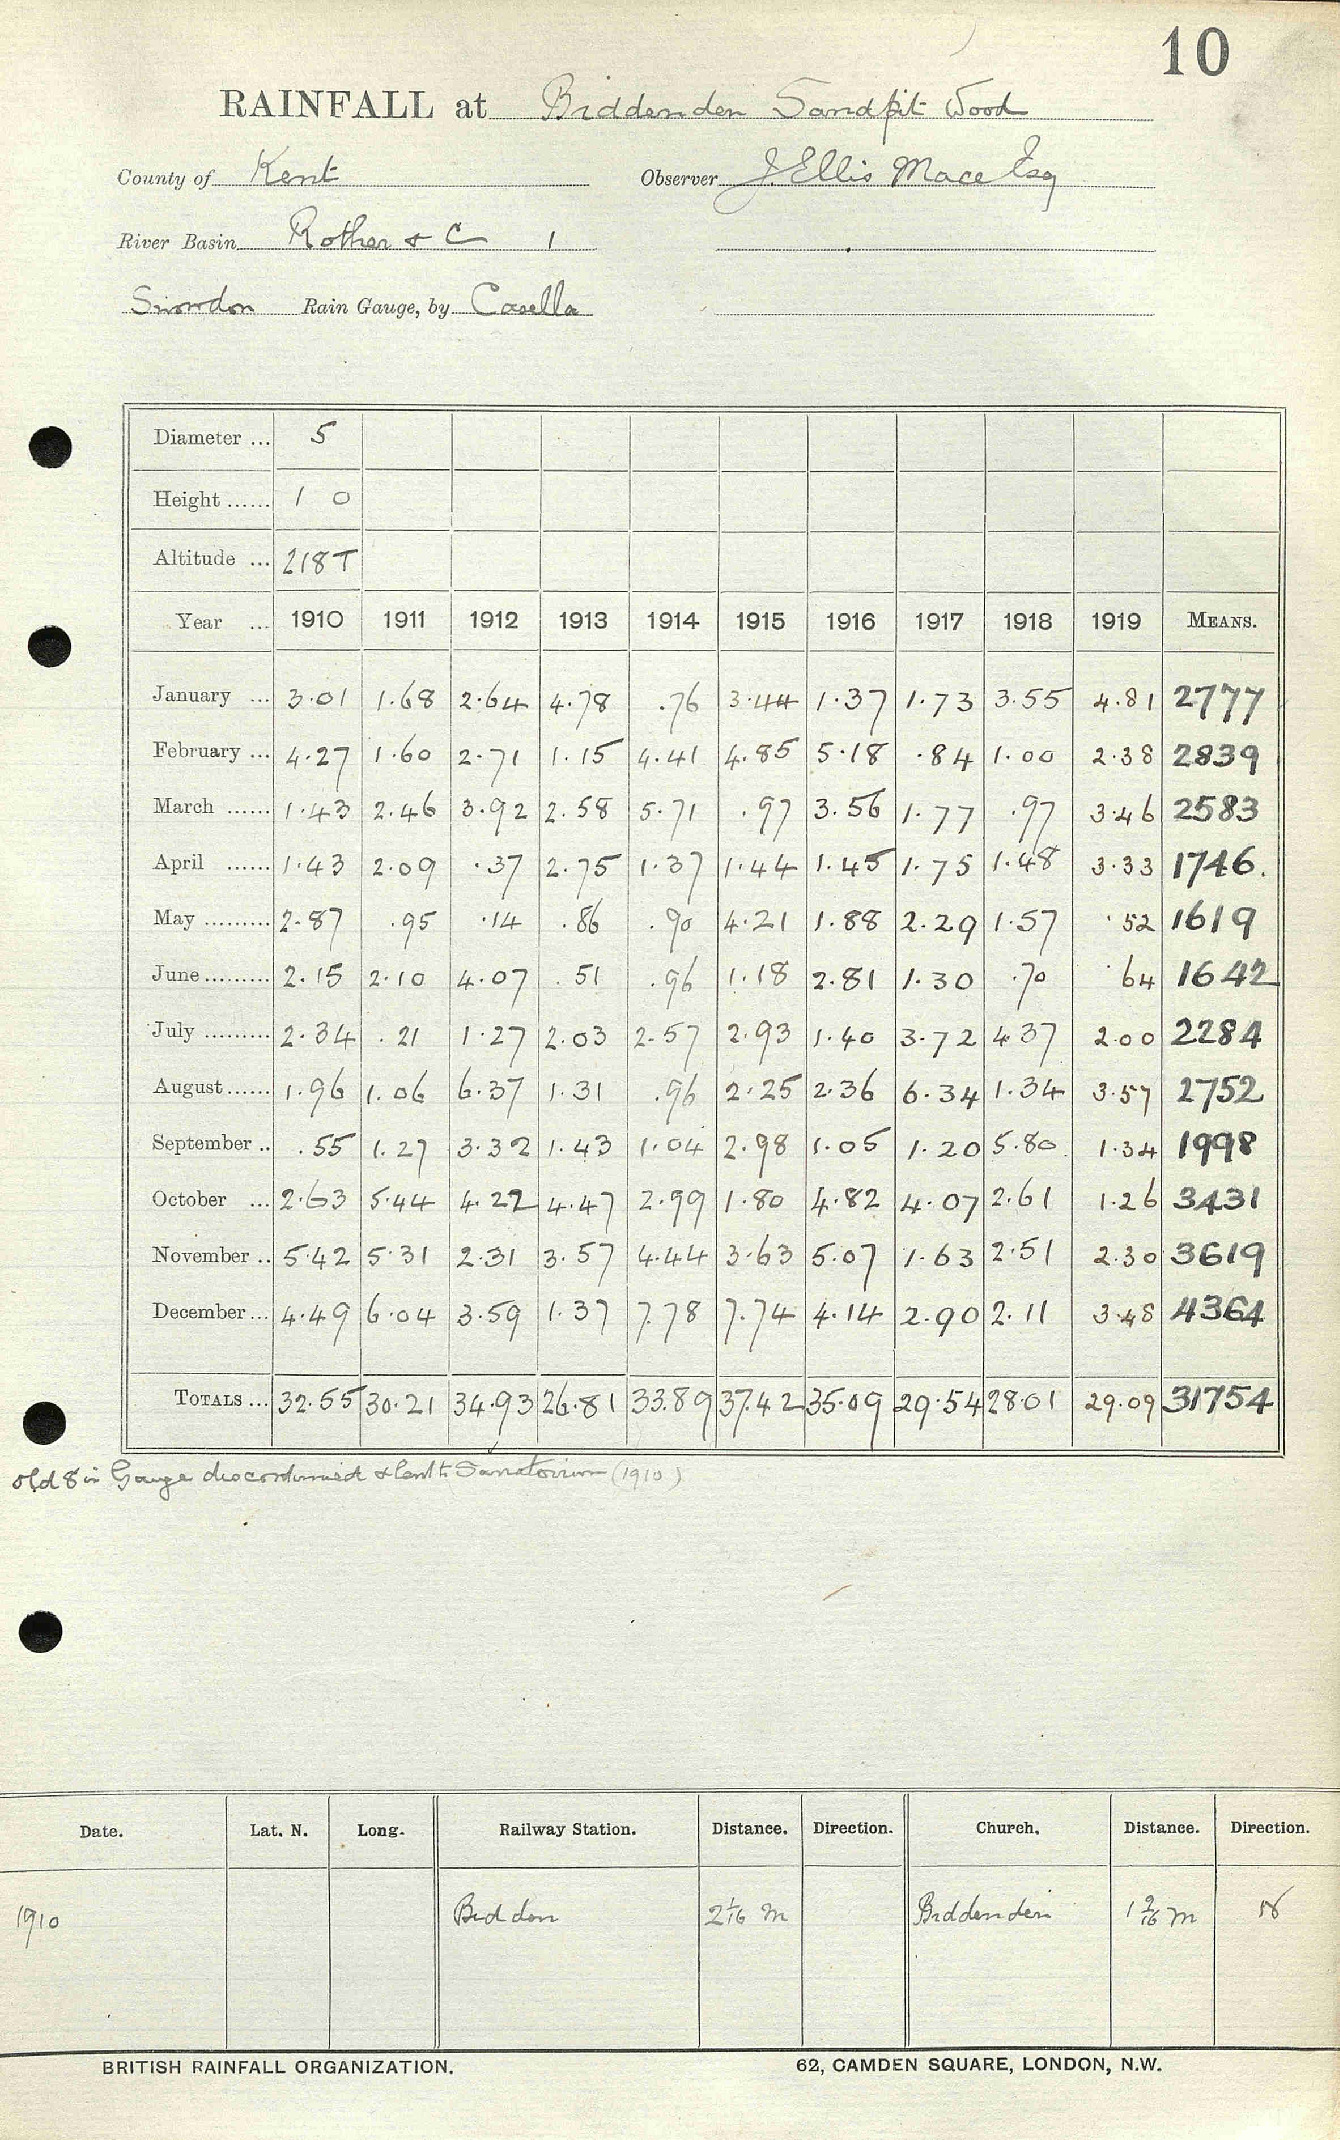 10
RAINFALL at Biddenden Sandpit Wood
County of Kent Observer J. Ellis Mace Esq
River Basin Rother & C 1
Snowdon Rain Gauge, by Casella
Diameter ... 5
Height ...... 1 0
Altitude ... 218T
Year ... 1910 1911 1912 1913 1914 1915 1916 1917 1918 1919 MEANS.
January ... 3.01 1.68 2.64 4.78 .76 3.44 1.37 1.73 3.55 4.81 2777
February ... 4.27 1.60 2.71 1.15 4.41 4.85 5.18 .84 1.00 2.38 2839
March ...... 1.43 2.46 3.92 2.58 5.71 .97 3.56 1.77 .97 3.46 2583
April ...... 1.43 2.09 .37 2.75 1.37 1.44 1.45 1.75 1.48 3.33 1746.
May ......... 2.87 .95 .14 .86 .90 4.21 1.88 2.29 1.57 .52 1619
June ......... 2.15 2.10 4.07 .51 .96 1.18 2.81 1.30 .70 .64 1642
July ......... 2.34 .21 1.27 2.03 2.57 2.93 1.40 3.72 4.37 2.00 2284
August ...... 1.96 1.06 6.37 1.31 .96 2.25 2.36 6.34 1.34 3.57 2752
September .. .55 1.27 3.32 1.43 1.04 2.98 1.05 1.20 5.80 1.34 1998
October ... 2.63 5.44 4.22 4.47 2.99 1.80 4.82 4.07 2.61 1.26 3431
November .. 5.42 5.31 2.31 3.57 4.44 3.63 5.07 1.63 2.51 2.30 3619
December ... 4.49 6.04 3.59 1.37 7.78 7.74 4.14 2.90 2.11 3.48 4364
TOTALS ... 32.55 30.21 34.93 26.81 33.89 37.42 35.09 29.54 28.01 29.09 31754
old 8 in Gauge discontinued & lent to Sanatorium (1910)
Date. Lat. N. Long. Railway Station. Distance. Direction. Church. Distance. Direction.
1910 Biddon 2 1/16 m Biddenden 1 9/16 m
BRITISH RAINFALL ORGANIZATION. 62, CAMDEN SQUARE, LONDON, N.W.